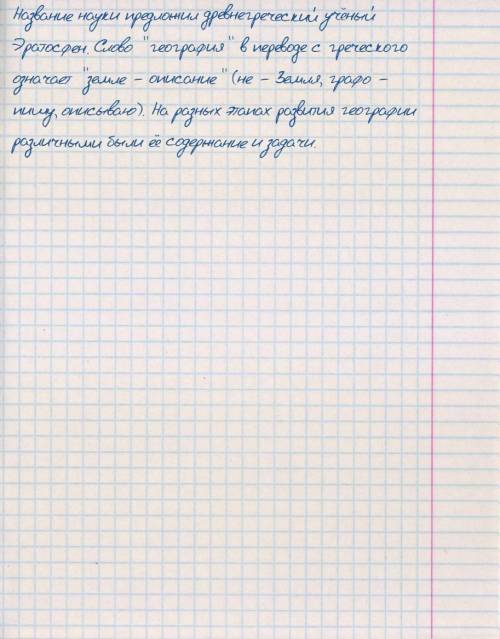 Название науки предложил древнегреческий учёный
Эратосфен. Слово "география" в переводе с греческого
означает "земле - описание" (не - Земля, графо -
пишу, описываю). На разных этапах развития географии
различными были её содержание и задачи.